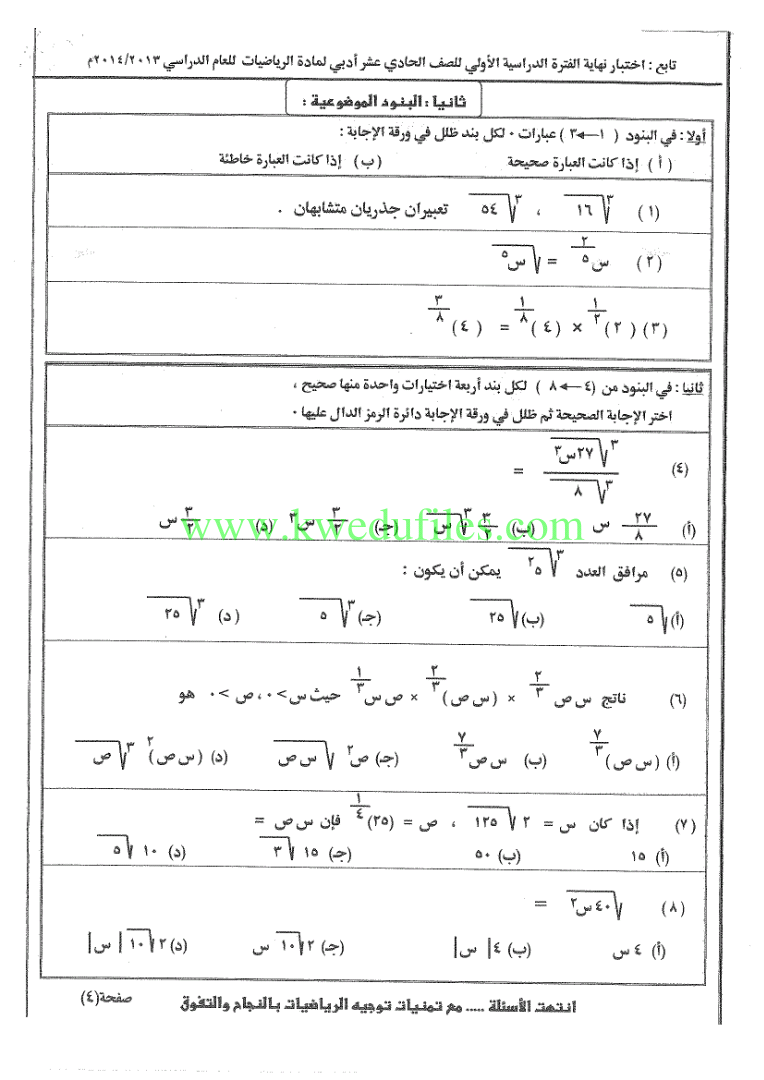 تابع : اختبار نهاية الفترة الدراسية الأولي للصف الحادي عشر أدبي لمادة الرياضيات للعام الدراسي ٢٠١٤/٢٠١٣م
ثانيا : البنود الموضوعية :
أولا : في البنود ( ١ ← ٣ ) عبارات ٠ لكل بند ظلل في ورقة الإجابة :
( أ ) إذا كانت العبارة صحيحة ( ب ) إذا كانت العبارة خاطئة
( ١ ) ∛١٦ ، ∛٥٤ تعبيران جذريان متشابهان .
( ٢ ) س^(٢/٥) = √س^٥
( ٣ ) ( ٢ )^(١/٢) × ( ٤ )^(١/٨) = ( ٤ )^(٣/٨)
ثانيا : في البنود من (٤ ← ٨ ) لكل بند أربعة اختيارات واحدة منها صحيح ،
اختر الإجابة الصحيحة ثم ظلل في ورقة الإجابة دائرة الرمز الدال عليها ٠
(٤) ∛٢٧س^٣ / ∛٨ =
(أ) ٢٧/٨ س (ب) ٣/٢ ∛س (جـ) ٣/٢ س^٣ (د) ٣/٢ س
www.kwedufiles.com
(٥) مرافق العدد ∛٢٥ يمكن أن يكون :
(أ) √٥ (ب) √٢٥ (جـ) ∛٥ ( د ) ∛٢٥
(٦) ناتج س ص^(٢/٣) × (س ص)^(٢/٣) × ص س^(١/٣) حيث س > ٠ ، ص > ٠ هو
(أ) (س ص)^(٧/٣) (ب) س ص^(٧/٣) (جـ) ص^٢ √س ص (د) (س ص)^٢ ∛ص
( ٧ ) إذا كان س = ٢ √١٢٥ ، ص = (٢٥)^(١/٤) فإن س ص =
(أ) ١٥ (ب) ٥٠ (جـ) ١٥ √٣ (د) ١٠ √٥
( ٨ ) √٤٠س^٢ =
(أ) ٤ س (ب) ٤ |س| (جـ) ٢√١٠ س (د) ٢√١٠ |س|
انتهت الأسئلة ..... مع تمنيات توجيه الرياضيات بالنجاح والتفوق صفحة(٤)